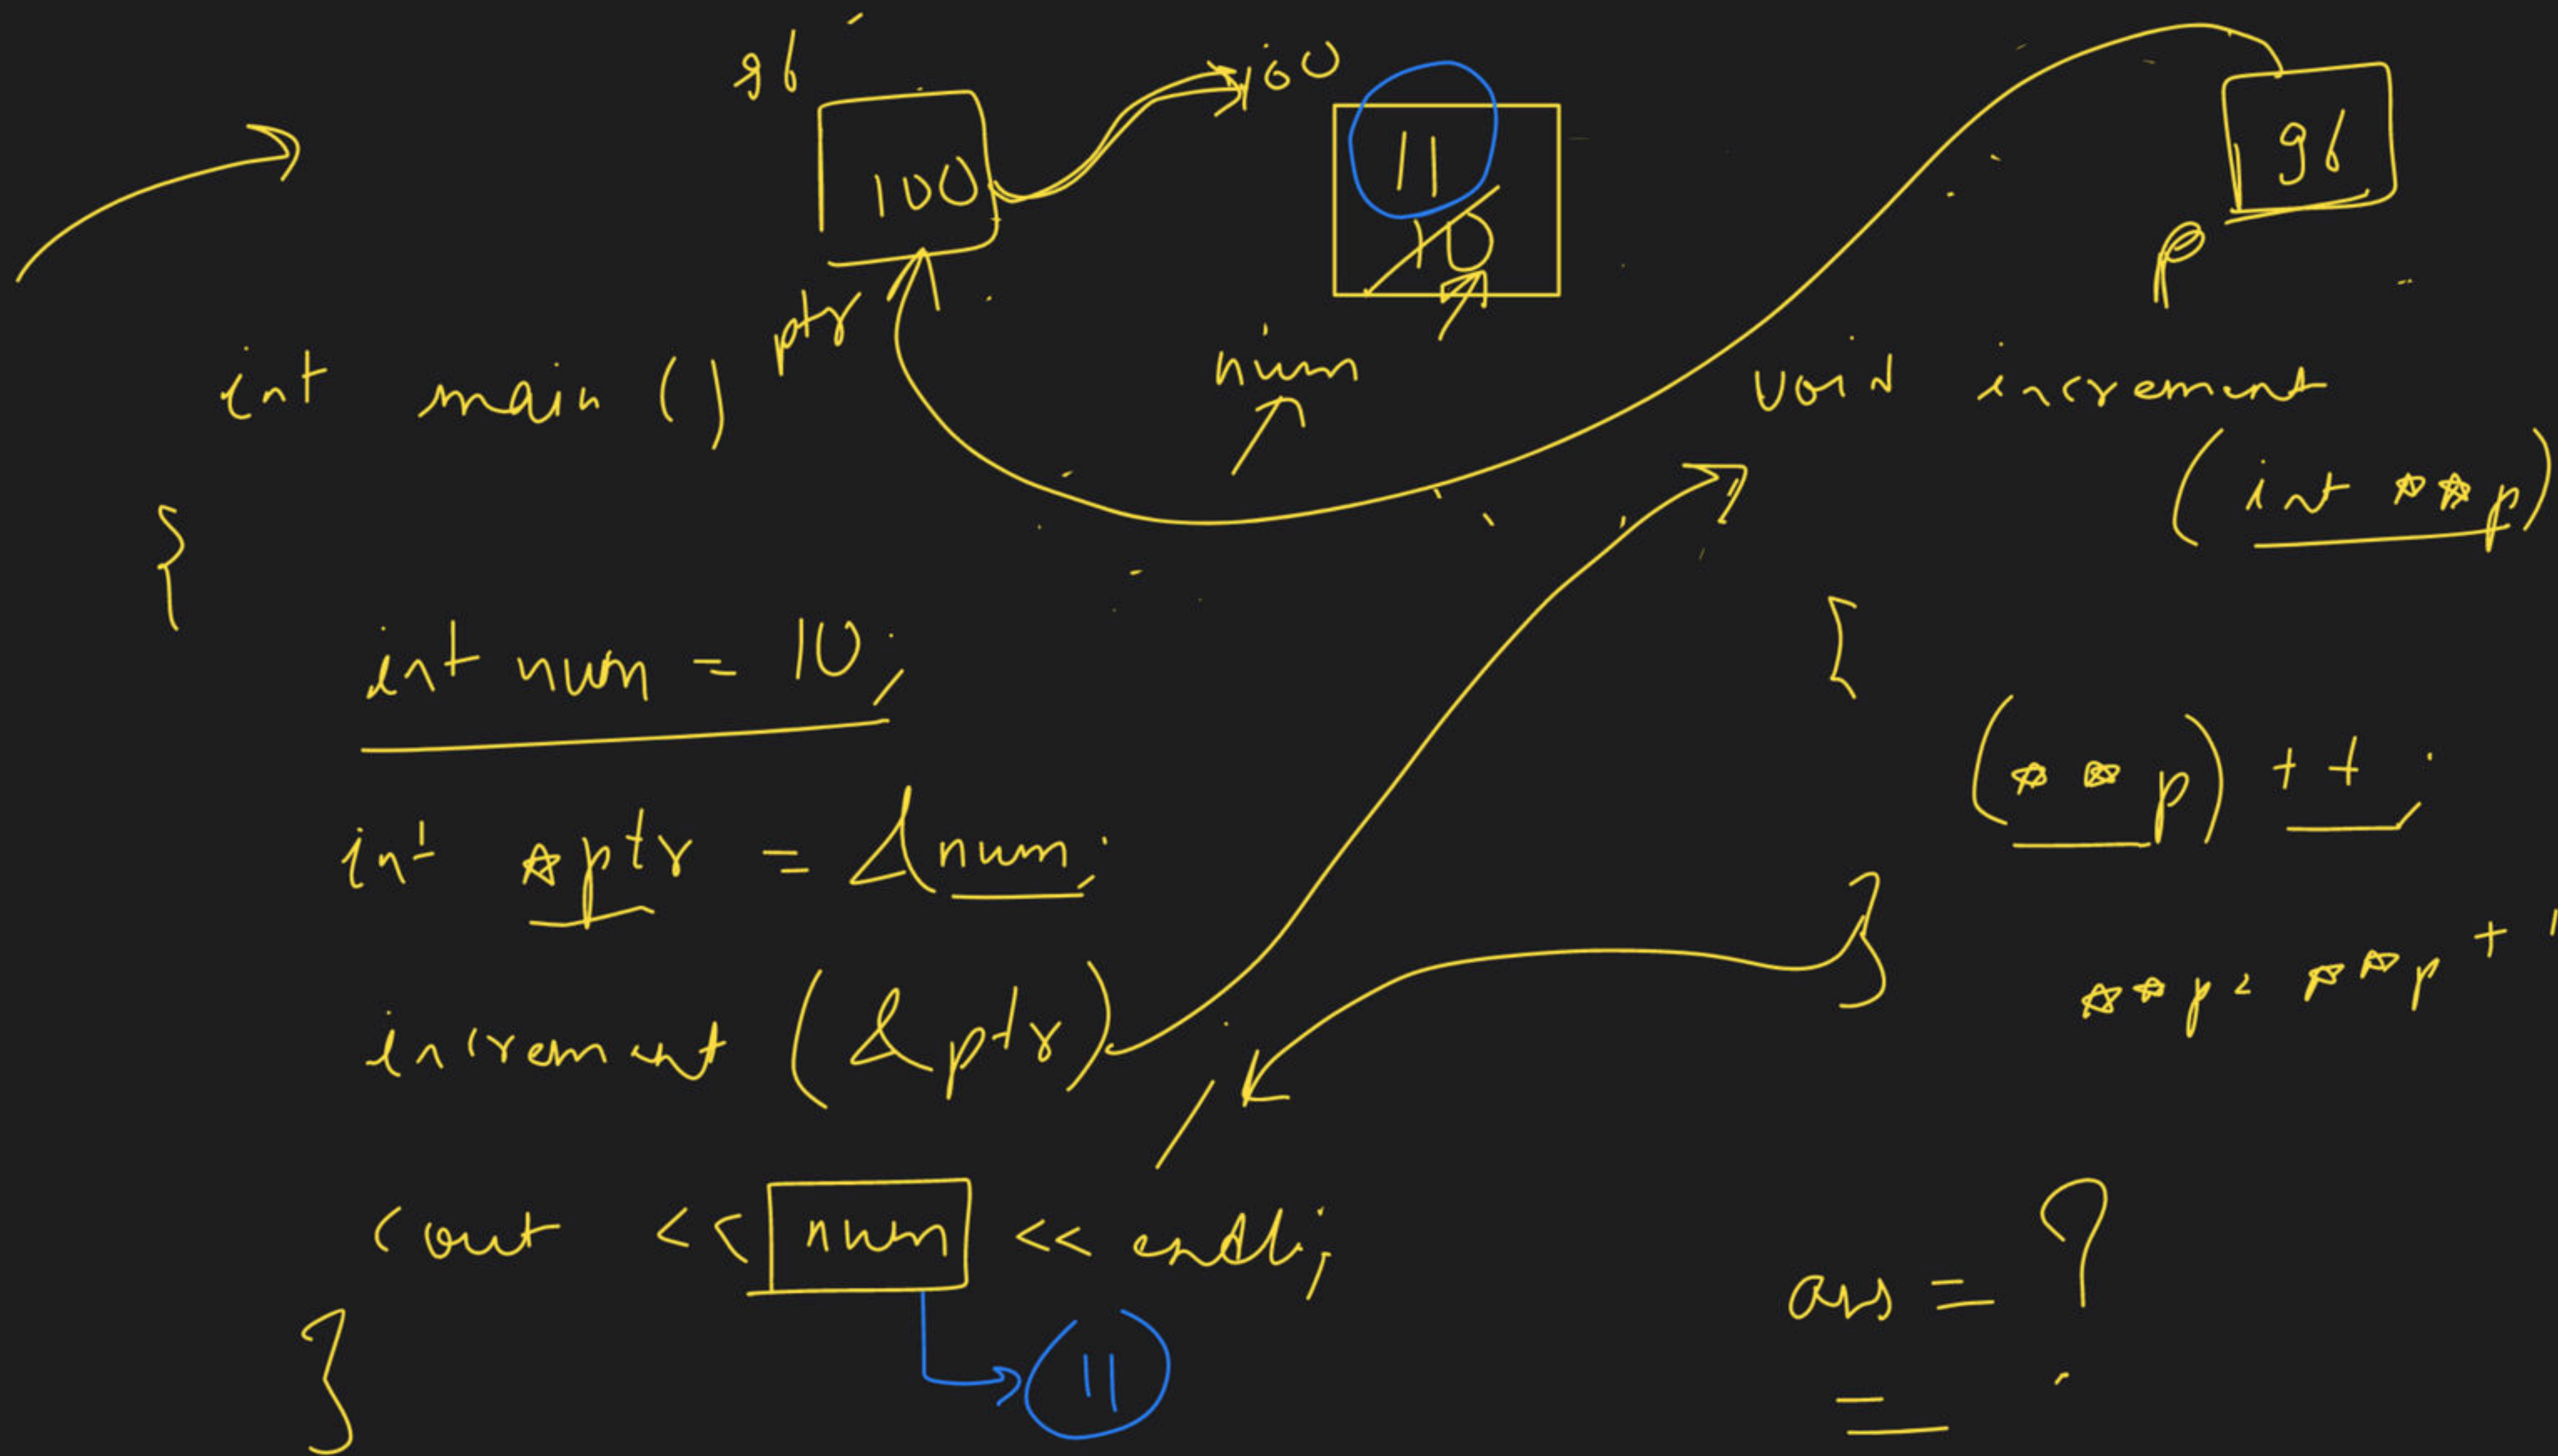 96
100
100
11
10
96
ptr
num
p
int main ()
{
int num = 10;
int *ptr = &num;
increment (&ptr)
cout << num << endl;
11
}
void increment
(int **p)
{
(**p) ++;
}
**p = **p + 1
ans = ?